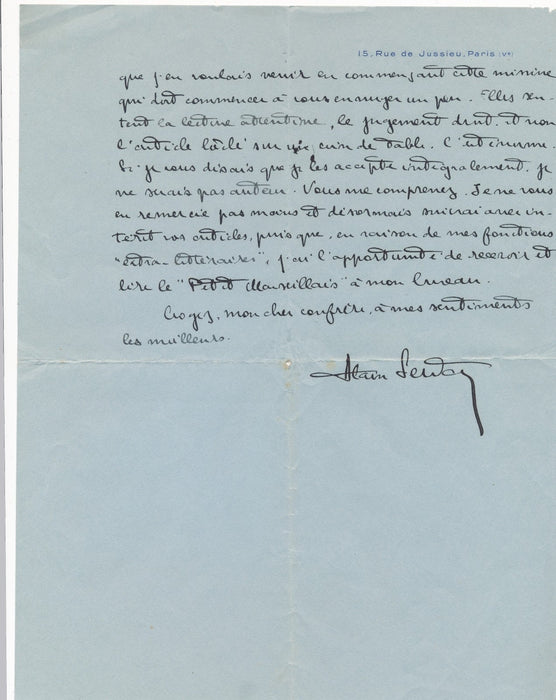 15, Rue de Jussieu, Paris (Vᵉ)
que j'en voulais venir en commençant cette missive
qui doit commencer à vous ennuyer un peu. Elles sen-
tent la lecture attentive, le jugement droit, et non
l'article bâclé sur un coin de table. C'est énorme.
Si je vous disais que je les accepte intégralement, je
ne serais pas auteur. Vous me comprenez. Je ne vous
en remercie pas moins et désormais suivrai avec in-
térêt vos articles, puisque, en raison de mes fonctions
"extra-littéraires", j'ai l'opportunité de recevoir et
lire le "Petit Marseillais" à mon bureau.
Croyez, mon cher confrère, à mes sentiments
les meilleurs.
Alain